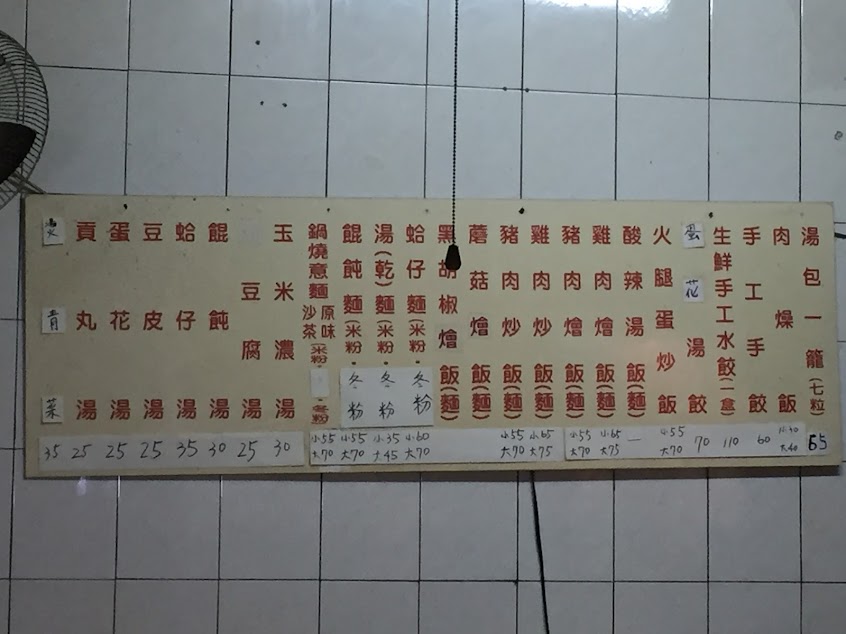 湯包一籠(七粒) 65
肉燥飯 大40
手工手餃 60
生鮮手工水餃(一盒) 110
蛋花湯餃 70
火腿蛋炒飯 小55 大70
酸辣湯飯(麵) 一
雞肉燴飯(麵) 小65 大75
豬肉燴飯(麵) 小55 大70
雞肉炒飯(麵) 小65 大75
豬肉炒飯(麵) 小55 大70
蘑菇燴飯(麵)
黑胡椒燴飯(麵)
蛤仔麵(米粉·冬粉 小60 大70
湯(乾)麵(米粉·冬粉 小35 大45
餛飩麵(米粉·冬粉 小55 大70
鍋燒意麵 原味 沙茶 (米粉·冬粉) 小55 大70
玉米濃湯 30
豆腐湯 25
餛飩湯 30
蛤仔湯 35
豆皮湯 25
蛋花湯 25
貢丸湯 25
燙青菜 35